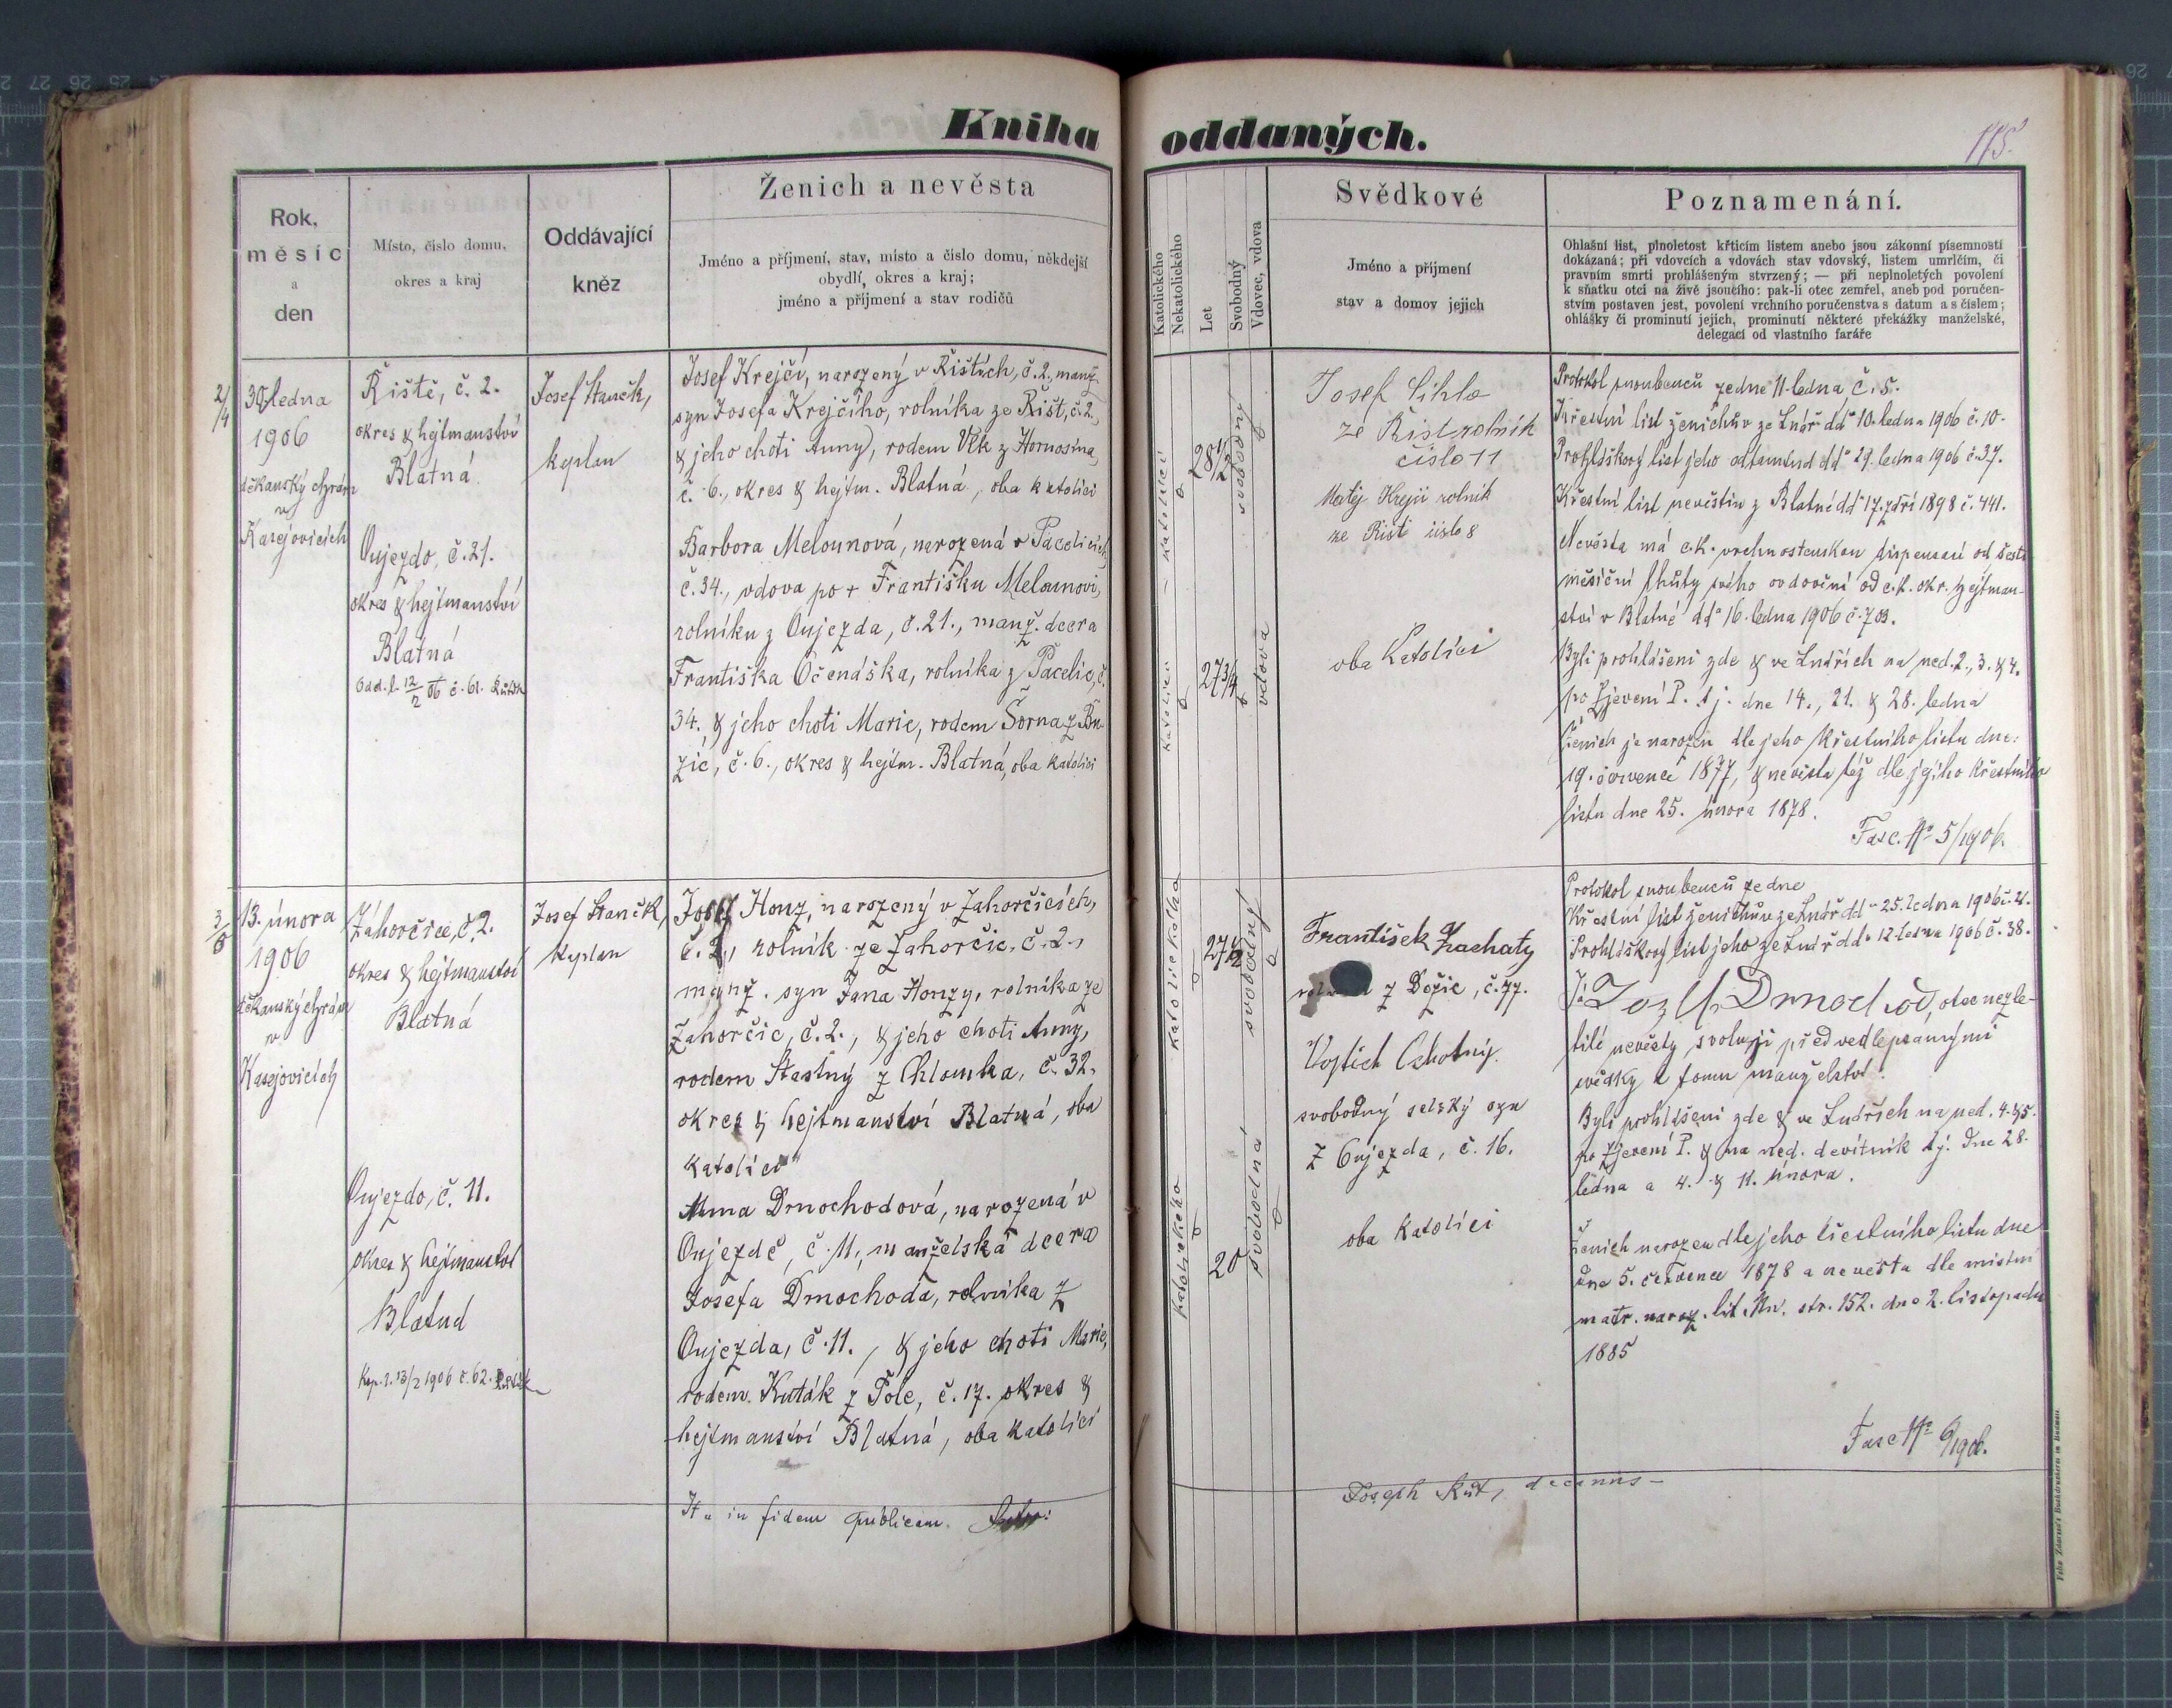 Kniha oddaných.
175.
Rok,
měsíc
a
den
Místo, číslo domu,
okres a kraj
Oddávající
kněz
Ženich a nevěsta
Jméno a příjmení, stav, místo a číslo domu, někdejší
obydlí, okres a kraj;
jméno a příjmení a stav rodičů
Katolického
Nekatolického
Let
Svobodný
Vdovec, vdova
Svědkové
Jméno a příjmení
stav a domov jejich
Poznamenání.
Ohlašní list, plnoletost křticím listem anebo jsou zákonní písemností
dokázaná; při vdovcích a vdovách stav vdovský, listem umrlčím, či
pravním smrti prohlášeným stvrzený; — při neplnoletých povolení
k sňatku otci na živě jsoucího: pak-li otec zemřel, aneb pod poručen-
stvím postaven jest, povolení vrchního poručenstva s datum a s číslem;
ohlášky či prominutí jejich, prominutí některé překážky manželské,
delegací od vlastního faráře
2/4
30. ledna
1906
děkanský chrám
v
Kasejovicích
Řiště, č. 2.
okres & hejtmanství
Blatná.
Oujezdo, č. 21.
okres & hejtmanství
Blatná
Odd. l. 12/2 06 č. 61.
Josef Staněk,
kaplan
Josef Krejčí, narozený v Řištích, č. 2., manž.
syn Josefa Krejčího, rolníka ze Řišt, č. 2.,
& jeho choti Anny, rodem Vlk z Hornosína,
č. 6., okres & hejtm. Blatná, oba katolíci
Barbora Melounová, narozená v Pacelicích,
č. 34., vdova po + Františku Melounovi,
rolníku z Oujezda, č. 21., manž. dcera
Františka Očenáška, rolníka z Pacelic, č.
34. & jeho choti Marie, rodem Šorna z Bu-
zic, č. 6., okres & hejtm. Blatná, oba katolíci
28 1/2
svobodný
27 3/4
vdova
Josef Cihla
ze Řišt rolník
číslo 11
Matěj Krejčí rolník
ze Řišti číslo 8
oba Katolíci
Protokol snoubenců ze dne 11. ledna č. 5.
Křestní list ženichův ze Lnář ddo 10. ledna 1906 č. 10.
Prohláškový list jeho odtamtud ddo 29. ledna 1906 č. 37.
Křestní list nevěstin z Blatné ddo 17. září 1898 č. 441.
Nevěsta má c. k. vrchnostenskou dispensaci od šesti-
měsíční lhůty svého ovdovění od c. k. okr. hejtman-
ství v Blatné ddo 16. ledna 1906 č. 703.
Byli prohlášeni zde & ve Lnářích na ned. 2., 3. & 4.
po Zjevení P. t. j. dne 14., 21. & 28. ledna
Ženich je narozen dle jeho křestního listu dne:
19. července 1877, & nevěsta též dle jejího křestního
listu dne 25. února 1878.
Fasc. No 5/1906.
3/8
13. února
1906
děkanský chrám
v
Kasejovicích
Záhorčice, č. 2.
okres & hejtmanství
Blatná
Oujezdo, č. 11.
okres & hejtmanství
Blatná
Kop. l. 13/2 1906 č. 62.
Josef Staněk,
kaplan
Josef Honz, narozený v Zahorčicích,
č. 2., rolník ze Zahorčic, č. 2.,
manž. syn Jana Honzy, rolníka ze
Zahorčic, č. 2., & jeho choti Anny,
rodem Šťastný z Chlomka, č. 32.
okres & hejtmanství Blatná, oba
katolíci
Anna Drnochodová, narozená v
Oujezdě, č. 11, manželská dcera
Josefa Drnochoda, rolníka z
Oujezda, č. 11., & jeho choti Marie,
rodem Kuták z Pole, č. 17. okres &
hejtmanství Blatná, oba katolíci
katolického
27 1/2
svobodný
katolického
20
svobodná
František Zachatý
z Dožic, č. 77.
Vojtěch
svobodný selský syn
z Oujezda, č. 16.
oba katolíci
Protokol snoubenců ze dne
Křestní list ženichův ze Lnář ddo 25. ledna 1906 č. 21.
Prohláškový list jeho ze Lnář ddo 12. 1906 č. 38.
Já Drnochod, otec nezle-
tilé nevěsty, svoluji před vedlepsanými
svědky k tomu manželství.
Byli prohlášeni zde & ve Lnářích na ned. 4. & 5.
po Zjevení P. & na ned. devítník t. j. dne 28.
ledna a 4. & 11. února.
Ženich narozen dle jeho křestního listu dne
dne 5. července 1878 a nevěsta dle místní
matr. naroz. lit. str. 152. dne 2. listopadu
1885
Fasc. No 6/1906.
Ita in fidem publicam.
Joseph Kůt, decanus